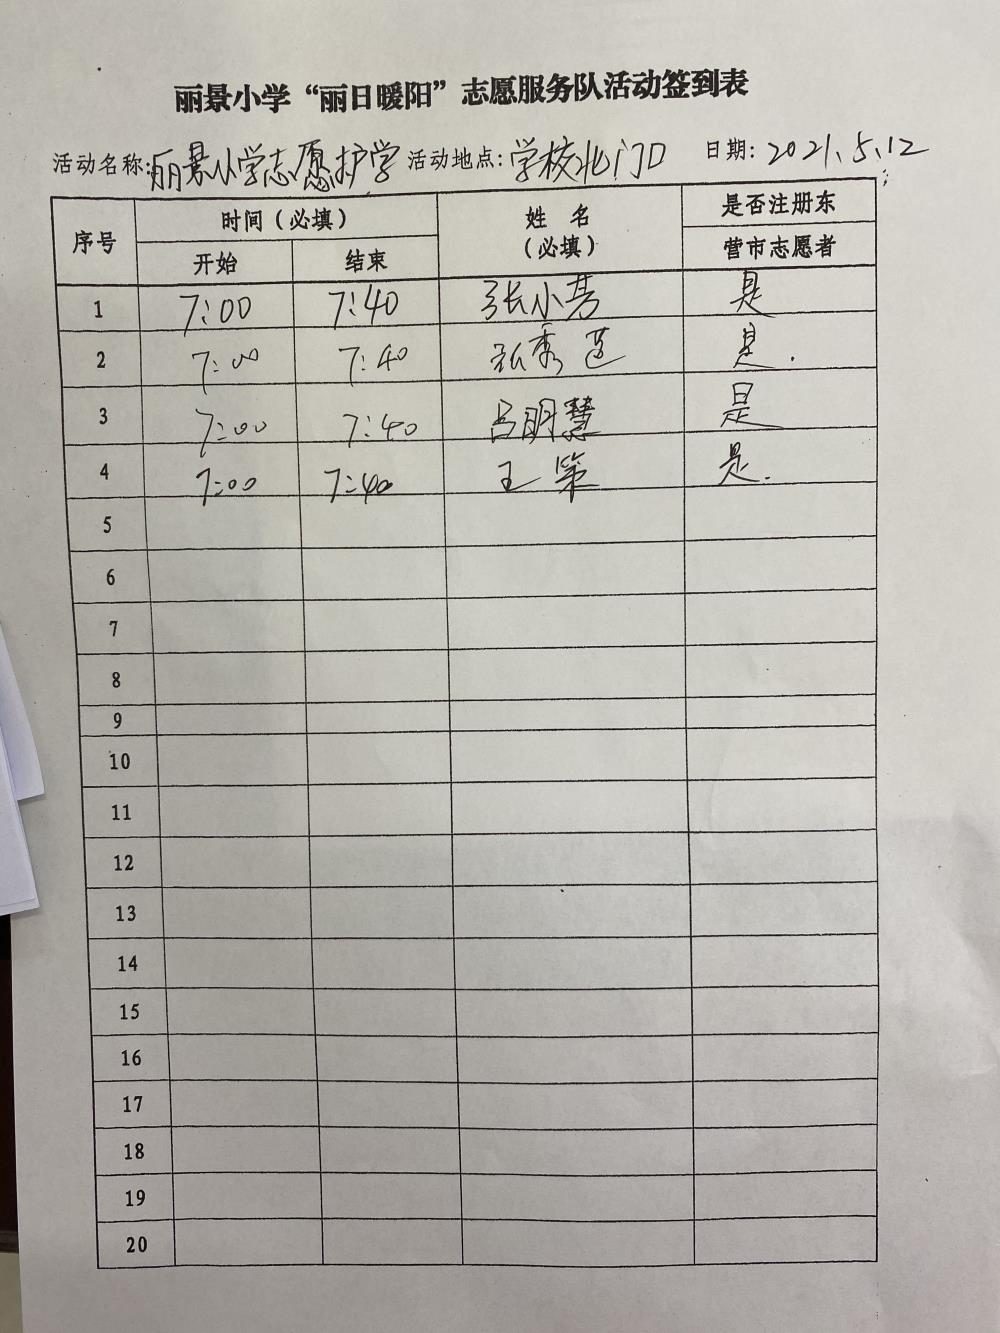 丽景小学“丽日暖阳”志愿服务队活动签到表
活动名称:丽景小学志愿护学 活动地点:学校北门口 日期:2021.5.12
序号 时间(必填) 姓 名 (必填) 是否注册东
开始 结束 营市志愿者
1 7:00 7:40 张小芳 是
2 7:00 7:40 张秀莲 是.
3 7:00 7:40 吕明慧 是
4 7:00 7:40 王 是.
5
6
7
8
9
10
11
12
13
14
15
16
17
18
19
20